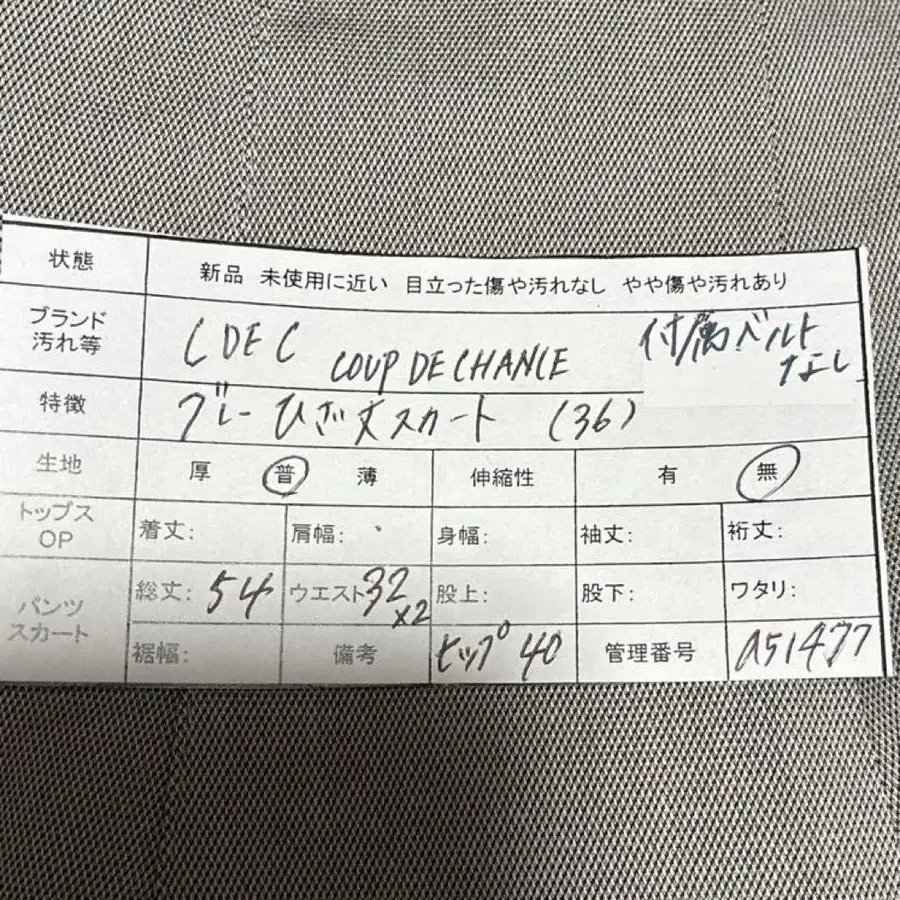 状態 新品 未使用に近い 目立った傷や汚れなし やや傷や汚れあり
ブランド
汚れ等
CDEC COUP DE CHANCE
付属ベルト
なし
特徴 グレーひざ丈スカート (36)
生地 厚 普 薄 伸縮性 有 無
トップス
OP
着丈: 肩幅: 身幅: 袖丈: 裄丈:
パンツ
スカート
総丈: 54 ウエスト 32
×2
股上: 股下: ワタリ:
裾幅: 備考 ヒップ 40 管理番号 a51477